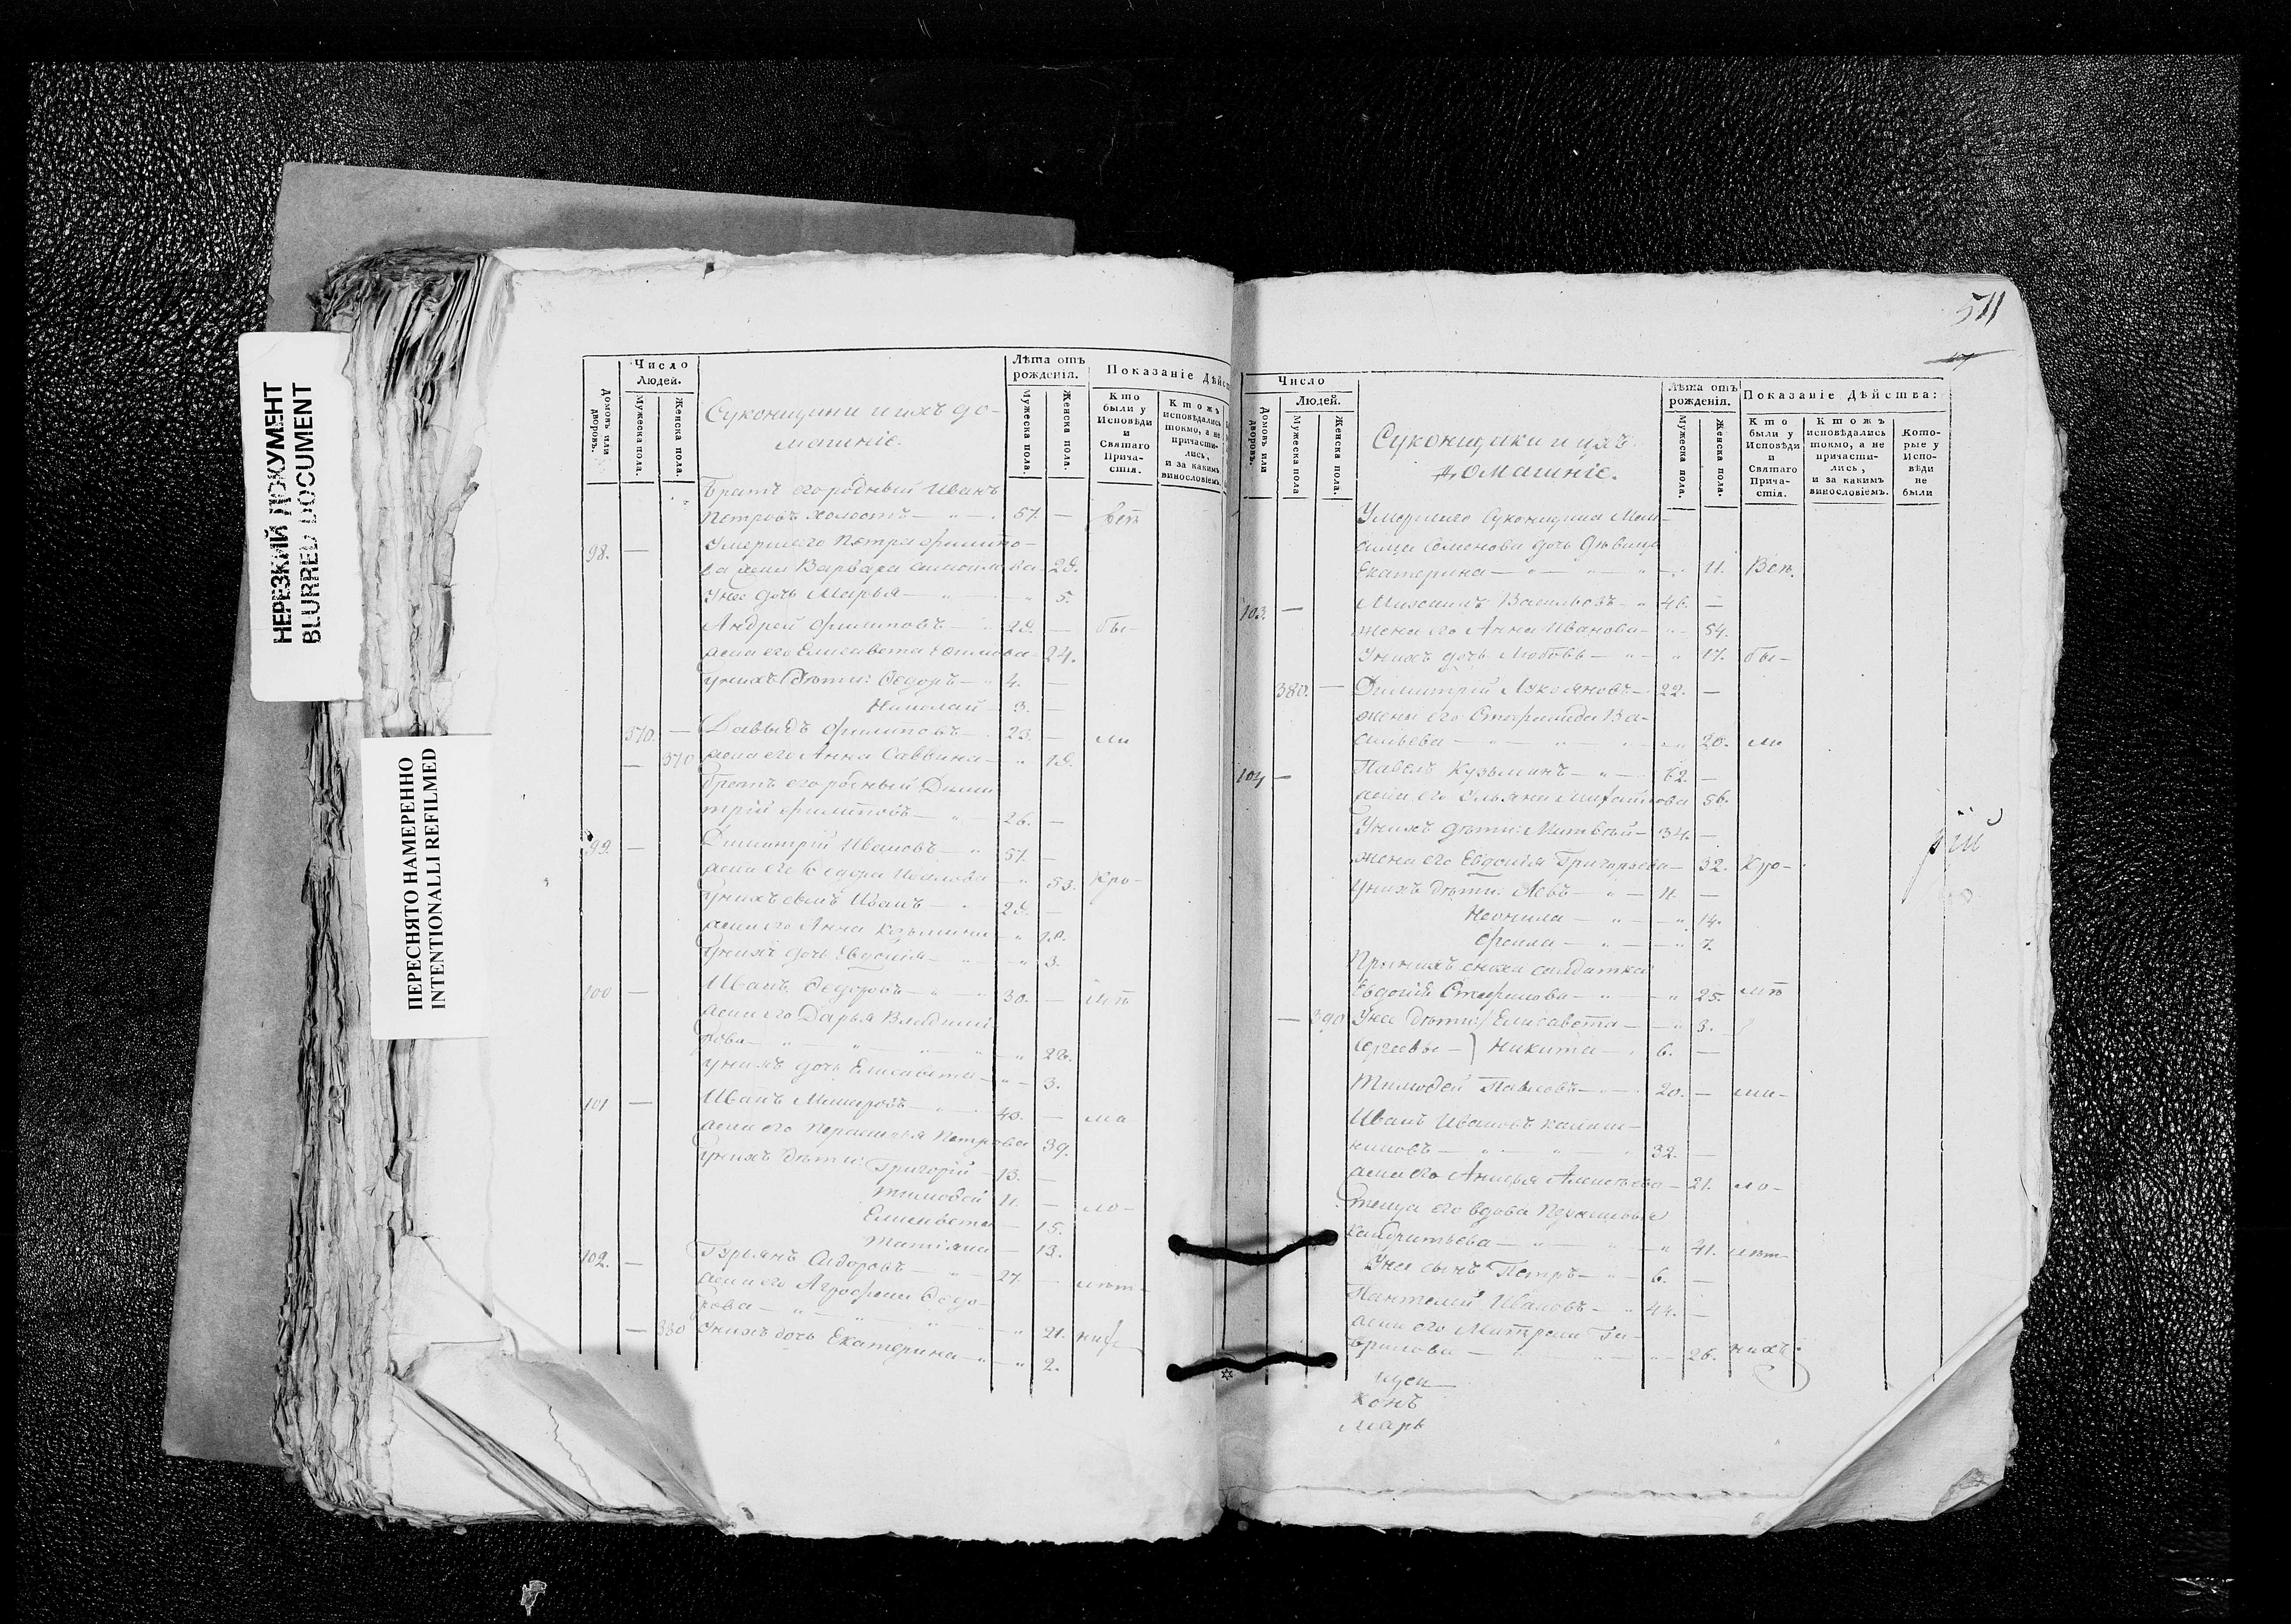 НЕРЕЗКИЙ ДОКУМЕНТ
BLURRED DOCUMENT
ПЕРЕСНЯТО НАМЕРЕННО
INTENTIONALLI REFILMED
Домовъ или дворовъ.
Число Людей.
Мужеска пола.
Женска пола.
Суконщики и ихъ до-
машніе.
Лѣта отъ рожденія.
Мужеска пола.
Женска пола.
Показаніе Дѣйс
Кто были у Исповѣди и Святаго Прича-стія.
Ктожъ исповѣдались токмо, а не причасти-лись, и за какимъ винословіемъ.
Братъ его родный Иванъ
Петровъ холостъ 57. — Вст
98. — Умершаго Петра Филипо-
ва жена Варвара 29.
У нее дочь Марья 5.
Андрей Филиповъ 29. — бы-
жена его Елисавета 24.
у нихъ дѣти: Ѳедоръ 4. —
Николай 3. —
370. — Давыдъ Филиповъ 23. — ли
— 370 жена его Анна Саввина 19.
братъ его родный Дими
трій Филиповъ 26. —
99. — Димитрій Ивановъ 57. —
жена его Ѳедора 53. Кро-
у нихъ сынъ Иванъ 29. —
жена его Анна Козьмина
у нихъ дочь Евдокія 3.
100 — Иванъ Ѳедоровъ 30. — мѣ
жена его Дарья Владими
рова 22.
у нихъ дочь Елисавета 3.
101 — Иванъ 43. — ма
жена его Параскевья Петрова 39.
у нихъ дѣти: Григорій 13. —
Тимоѳей 11. — ло-
Елисавета 15.
Татіана 13.
102. — Гурьянъ Сидоровъ 27. — лѣт-
жена его Агрофена Ѳедо-
рова 21. нихъ
— 380 У нихъ дочь Екатерина 2.
511
Домовъ или дворовъ.
Число Людей.
Мужеска пола
Женска пола.
Суконщики и ихъ
домашніе.
Лѣта отъ рожденія.
Мужеска пола.
Женска пола.
Показаніе Дѣйства:
Кто были у Исповѣди и Святаго Прича-стія.
Ктожъ исповѣдались токмо, а не причасти-лись, и за какимъ винословіемъ.
Кото-рые у Испо-вѣди не были
Умершаго Суконщика
Семенова дочь дѣвица
Екатерина 11. Всѣ.
103. — Михаилъ Васильевъ 46. —
жена его Анна Иванова 54.
У нихъ дочь Любовь 17. бы-
380. — Димитрій Лукояновъ 22. —
жена его Стефанида Ва-
сильева 20. ли
104 — Павелъ Кузьминъ 62. —
жена его Ульяна Михайлова 56.
У нихъ дѣти: Матвѣй 34. —
жена его Евдокія Григорьева 32. Кро-
у нихъ дѣти: Левъ 11. —
Неонила 14.
7.
При нихъ сноха салдатка
Евдокія Стефанова 25. мѣ
— 390 У нее дѣти: Елисавета 3.
Сергѣевы Никита 6. —
Тимоѳей Павловъ 20. — ма-
Иванъ Ивановъ Калаш-
никовъ 32. —
жена его Анисья Алексѣева 21. ло-
теща его вдова
41. лѣт-
У нее сынъ Петръ 6. —
Пантелей Ивановъ 44. —
жена его Матрена Га-
врилова 26. нихъ.
рій
Конъ
Марь